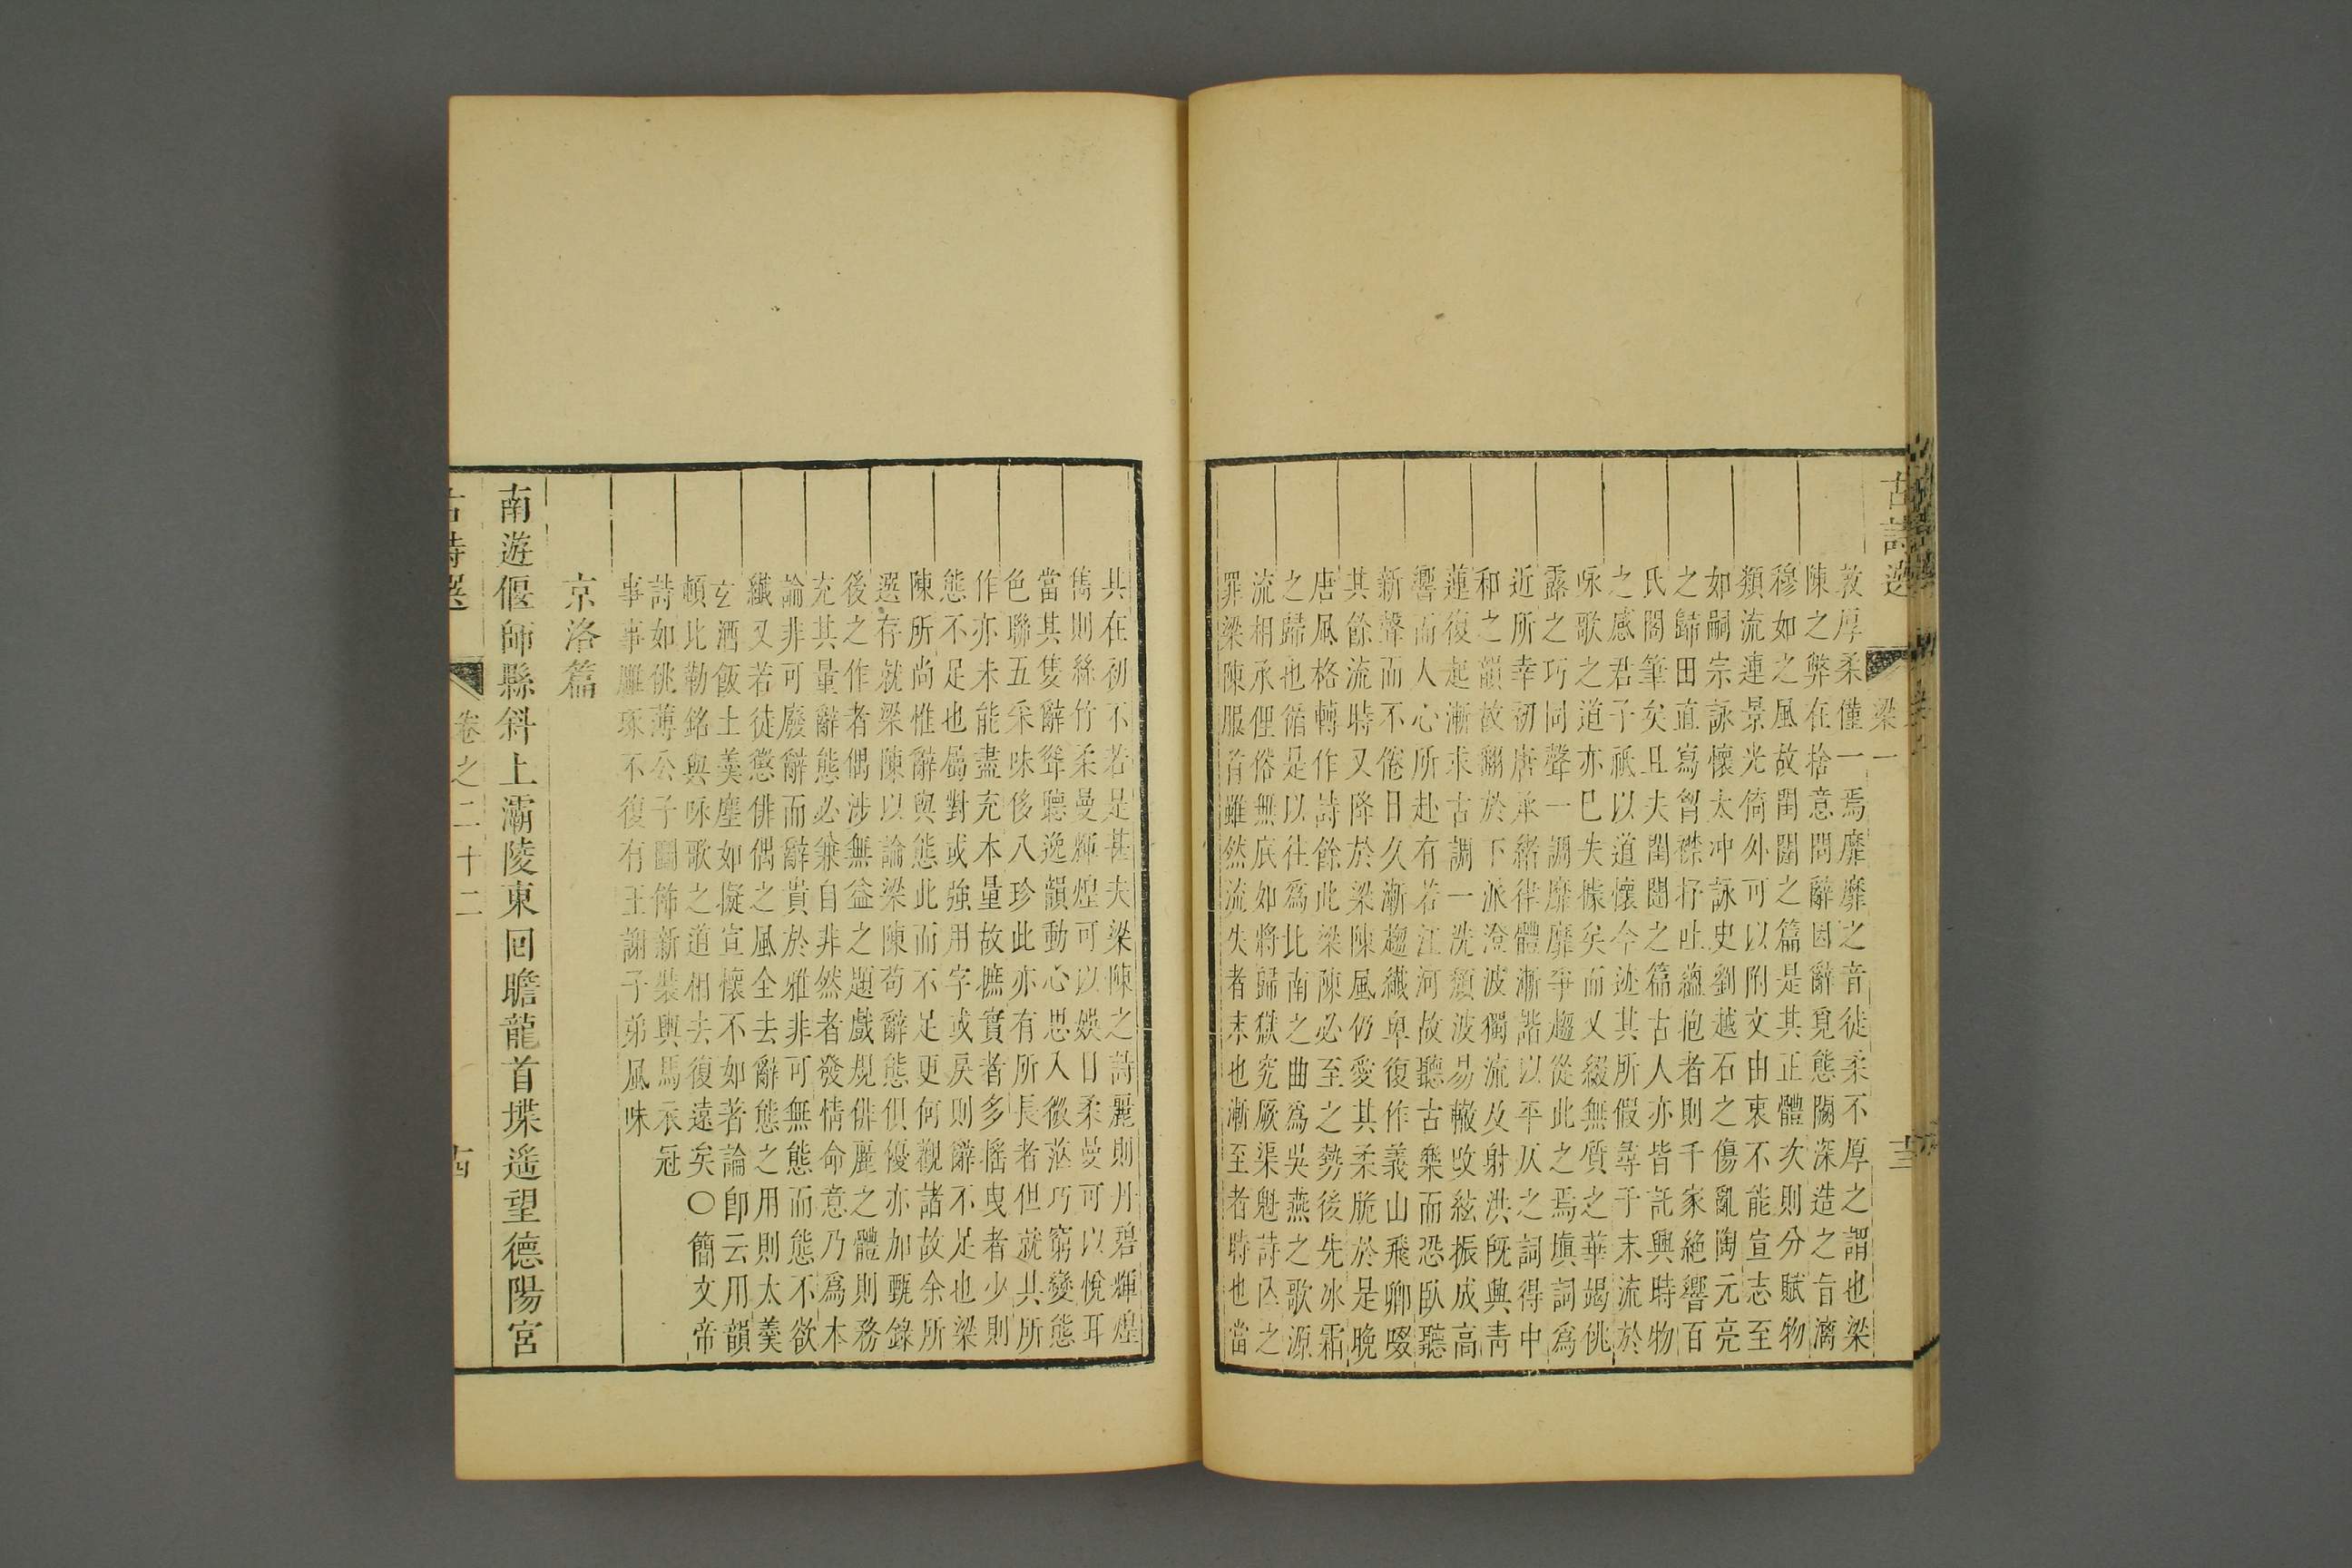 古詩選 梁一 十三
敦厚柔僅一焉靡靡之音徒柔不厚之謂也梁
陳之弊在捨意問辭因辭覓態闕深造之旨漓
穆如之風故閨闥之篇是其正體次則分賦物
類流連景光倚外可以附文由衷不能宣志至
如嗣宗詠懷太冲詠史劉越石之傷亂陶元亮
之歸田直寫胷襟抒吐蘊抱者則千家絶響百
氏閣筆矣且夫閨闥之篇古人亦皆託興時物
之感君子祇以道懷今迹其所假尋于末流於
咏歌之道亦巳失㯫矣而又綴無質之華竭佻
露之巧同聲一調靡靡爭趨從此之焉塡詞爲
近所幸初唐承緒律體漸諧以平仄之詞得中
和之韻故翻於下派澄波獨流及射洪旣興靑
蓮復起漸求古調一洗頹波易轍攺絃振成高
響而人心所赴有若江河故聽古樂而恐臥聽
新聲而不倦日久漸趨纖卑復作義山飛卿啜
其餘流時又降於梁陳風仍愛其柔脆於是晚
唐風格轉作詩餘此梁陳必至之勢後先冰霜
之歸也循是以往爲比南之曲爲吳燕之歌源
流相承俚俗無底如將歸獄究厥渠魁詩亾之
罪梁陳服首雖然流失者末也漸至者時也當
其在初不若是甚夫梁陳之詩麗則丹碧輝煌
雋則絲竹柔曼輝煌可以娛目柔曼可以悅耳
當其隻辭聳聽逸韻動心思入微茫巧窮變態
色聯五采味侈八珍此亦有所長者但就其所
作亦未能盡充本量故樵實者多搖曳者少則
態不足也屬對或強用字或戾則辭不足也梁
陳所尚惟辭與態此而不足更何觀諸故余所
選存就梁陳以論梁陳苟辭態俱優亦加甄錄
後之作者偶涉無益之題戲規俳麗之體則務
充其量辭態必兼自非然者發情命意乃爲本
論非可廢辭而辭貴於雅非可無態而態不欲
纖又若徒懲俳偶之風全去辭態之用則太羹
玄酒飯土羹塵如擬宣懷不如著論卽云用韻
頓比勒銘與咏歌之道相去復遠矣〇簡文帝
詩如佻薄公子鬭飾新裝輿馬衣冠
事事雕琢不復有王謝子弟風味
京洛篇
南遊偃師縣斜上灞陵東回瞻龍首堞遙望德陽宮
古詩選 卷之二十二 十四